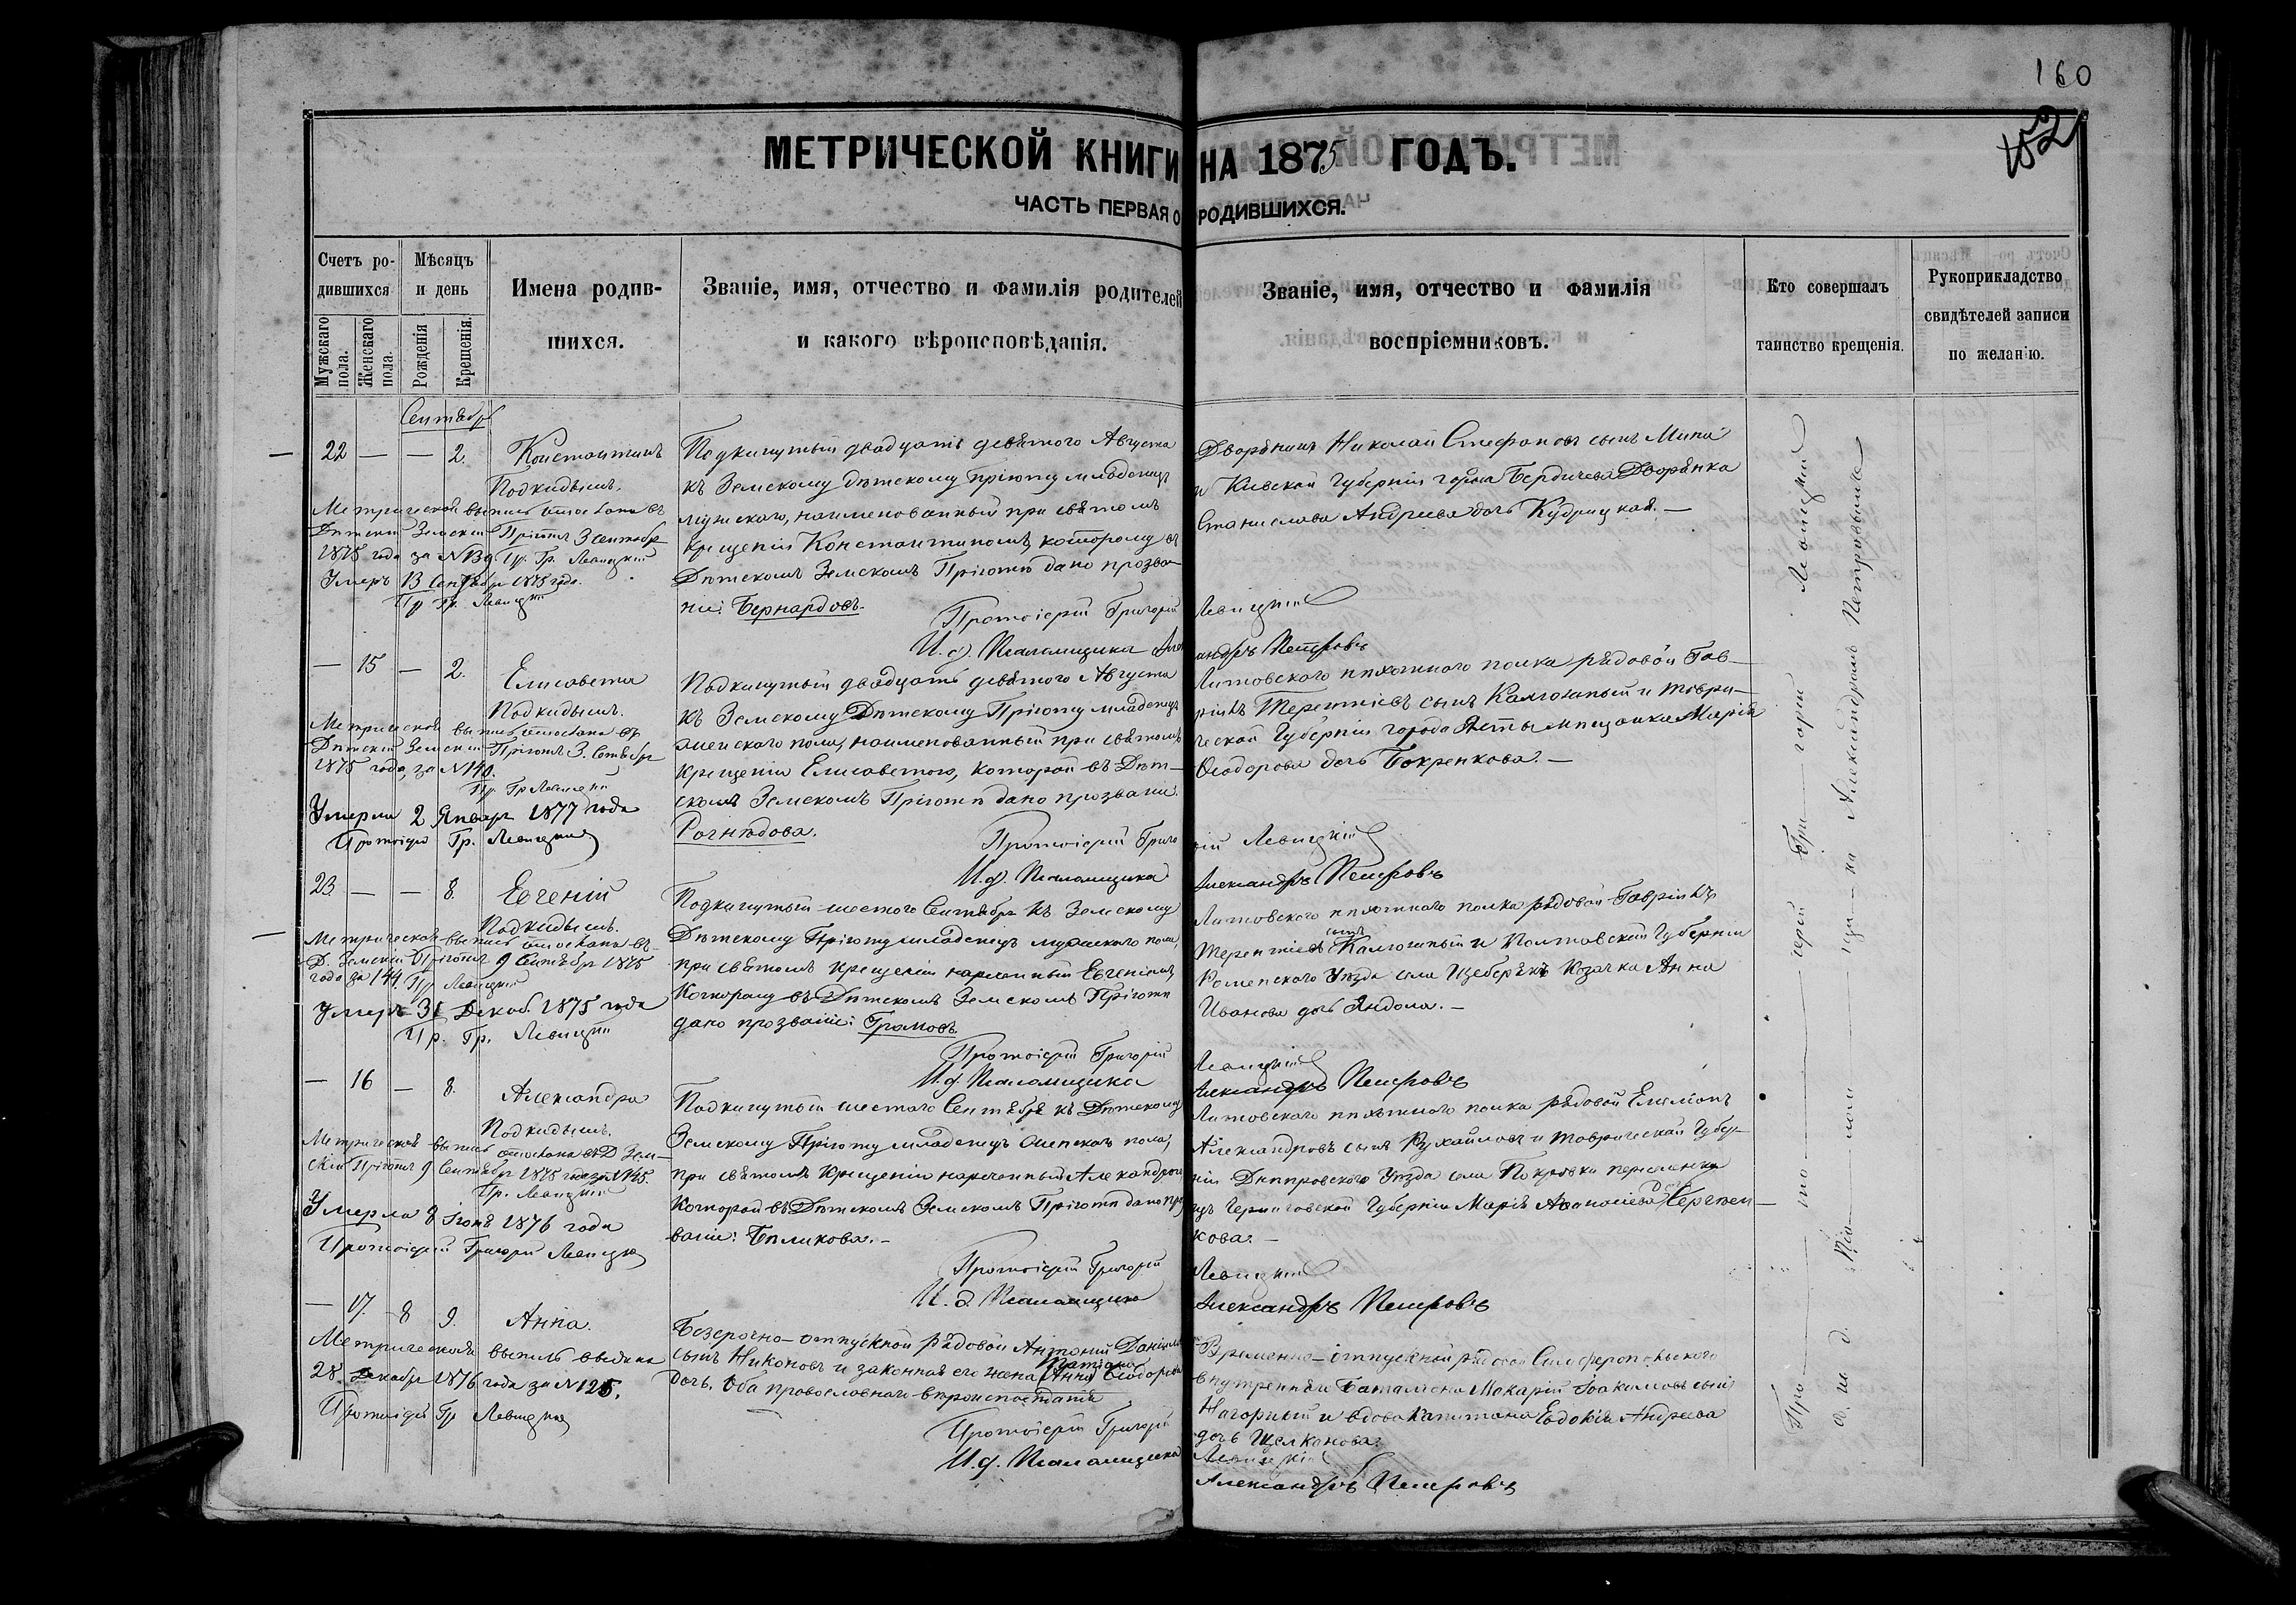 160
152
МЕТРИЧЕСКОЙ КНИГИ НА 1875 ГОДЪ.
ЧАСТЬ ПЕРВАЯ О РОДИВШИХСЯ.
Счетъ родившихся
Мужскаго пола.
Женскаго пола.
Мѣсяцъ и день
Рожденія
Крещенія.
Имена родив-
шихся.
Званіе, имя, отчество и фамилія родителей
и какого вѣроисповѣданія.
Званіе, имя, отчество и фамилія
воспріемниковъ.
Кто совершалъ
таинство крещенія.
Рукоприкладство
свидѣтелей записи
по желанію.
Сентябрь
22 — — 2.
Константинъ
Подкидышъ.
Метрической выпись отослана въ
Дѣтскій Земскій Пріютъ 3 Сентябр
1875 года за N 139. Пр. Гр. Левицкій
Умеръ 13 Сентября 1875 года.
Пр Гр. Левицкій
Подкинутый двадцать девятого Августа
къ Земскому дѣтскому пріюту младенецъ
мужскаго, наименованный при святомъ
крещеніи Константиномъ, которому въ
Дѣтскомъ Земскомъ Пріютѣ дано прозва-
ніе: Бернардовъ.
Дворянинъ Николай Стефановъ сынъ
и Кіевской Губерніи города Бердичева Дворянка
Станислава Андреева дочь Кудрицкая. —
Протоіерей Григорій Левицкій
И. д. Псаломщика Александръ Петровъ
— 15 — 2.
Елисавета
Подкидышъ.
Метрической выпись отослана въ
Дѣтскій Земскій Пріютъ 3. Сентбр
1875 года за N 140.
Пр. Гр Левицкій
Умерла 2 Января 1877 года
Протоіерей Гр. Левицкій
Подкинутый двадцать девятого Августа
къ Земскому Дѣтскому Пріюту младенецъ
женскаго пола, наименованный при святомъ
крещеніи Елисаветою, которой въ Дѣт-
скомъ Земскомъ Пріютѣ дано прозваніе
Рогнѣдова.
Литовского пѣхотного полка рядовой Гав-
ріилъ Терентіевъ сынъ Калюжный и Таври-
ческой Губерніи города Ялты мѣщанка Марія
Ѳеодорова дочь Бокренкова. —
Протоіерей Григорій Левицкій
И. д. Псаломщика Александръ Петровъ
23. — — 8.
Евгеній
Подкидышъ.
Метрической выпись отослана въ
Д. Земскій Пріютъ 9 Сентября 1875
года за 144. Пр Левицкій
Умеръ 31 Декаб. 1875 года
Пр. Гр. Левицкій
Подкинутый шестого Сентября къ Земскому
Дѣтскому Пріюту младенецъ мужскаго пола,
при святомъ крещеніи нареченный Евгеніемъ,
Которому въ Дѣтскомъ Земскомъ Пріютѣ
дано прозваніе: Громовъ
Литовского пѣхотного полка рядовой Гавріилъ
Терентіевъ сынъ Калюжный и Полтавской Губерніи
Роменского Уѣзда села Козачка Анна
Иванова дочь Яндола. —
Протоіерей Григорій Левицкій
И. д. Псаломщика Александръ Петровъ
— 16 — 8.
Александра
Подкидышъ.
Метрической выпись отослана въ Д Зем-
скій Пріютъ 9 Сентября 1875 года за N 145.
Пр. Левицкій
Умерла 8 Іюня 1876 года
Протоіерей Григорій Левицкій
Подкинутый шестого Сентября къ Дѣтскому
Земскому Пріюту младенецъ женскаго пола,
при святомъ крещеніи нареченный Александрою
Которой въ Дѣтскомъ Земскомъ Пріютѣ дано проз
ваніе: Бѣликова. —
Литовского пѣхотного полка рядовой Емеліанъ
Александровъ сынъ и Таврической Губер-
ніи Днѣпровского Уѣзда села Покровки
Черниговской Губерніи Марія Аѳанасіева дочь Сергѣен-
кова. —
Протоіерей Григорій Левицкій
И. д. Псаломщика Александръ Петровъ
— 17. 8 9.
Анна.
Метрической выпись выдана
28 Декабря 1876 года за N 125.
Протоіерей Гр Левицкій
Безсрочно-отпускной рядовой Антоній Даніиловъ
сынъ Никоновъ и законная его жена (Анна) Татіана Ѳеодорова
дочь. Оба православнаго вѣроисповѣданія
Временно-отпускной рядовой Симферопольского
внутренняго Баталіона Макарій Іоакимовъ сынъ
Нагорный и вдова Капитана Евдокія Андреева
дочь Щелканова.
Протоіерей Григорій Левицкій
И. д. Псаломщика Александръ Петровъ
Про — то — іерей Гри — горій Левицкій
И. д. Псаломщика Александръ Петровъ